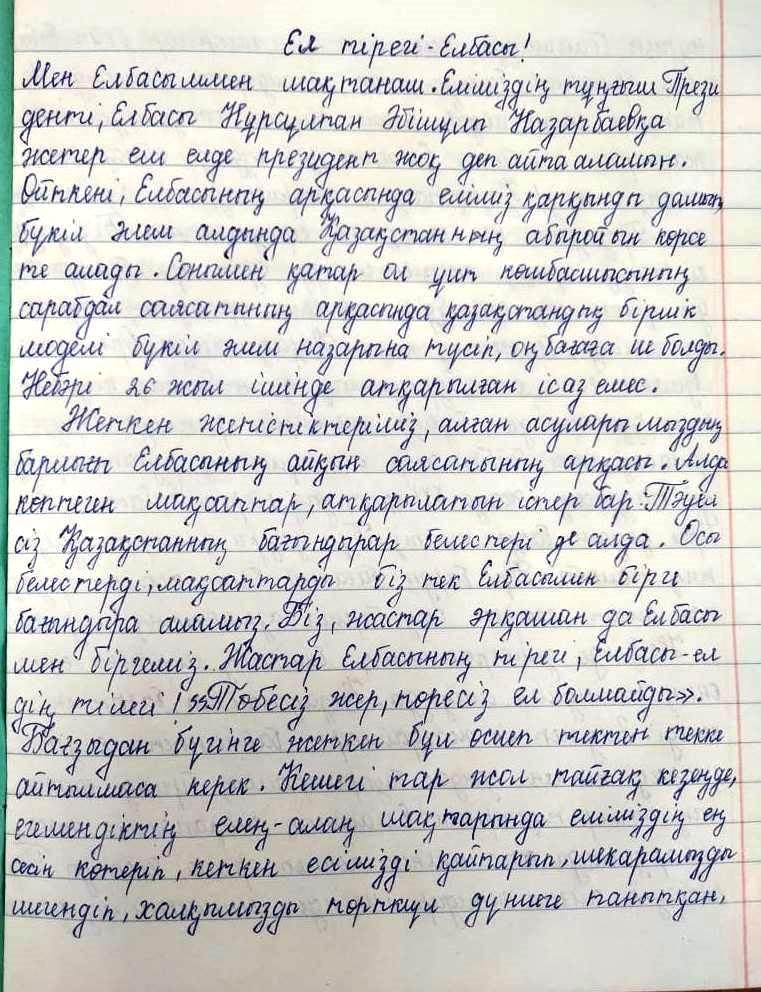 Ел тірегі - Елбасы!
Мен Елбасыммен мақтанам. Еліміздің тұңғыш Прези
денті, Елбасы Нұрсұлтан Әбішұлы Назарбаевқа
жетер еш елде президент жоқ деп айта аламын.
Өйткені, Елбасының арқасында еліміз қарқынды дамып,
бүкіл әлем алдында Қазақстанның абыройын көрсе
те алады. Сонымен қатар ол ұлт көшбасшысының
сарабдал саясатының арқасында қазақстандық бірлік
моделі бүкіл әлем назарына түсіп, оң бағаға ие болды.
Небәрі 26 жыл ішінде атқарылған іс аз емес.
Жеткен жетістіктеріміз, алған асуларымыздың
барлығы Елбасының айқын саясатының арқасы. Алда
көптеген мақсаттар, атқарылатын істер бар. Тәуел
сіз Қазақстанның бағындырар белестері де алда. Осы
белестерді, мақсаттарды біз тек Елбасымен бірге
бағындыра аламыз. Біз, жастар әрқашан да Елбасы
мен біргеміз. Жастар Елбасының тірегі, Елбасы-ел
дің тілегі! »Төбесіз жер, төресіз ел болмайды».
Бағзыдан бүгінге жеткен бұл өсиет тектен текке
айтылмаса керек. Кешегі тар жол тайғақ кезеңде,
егемендіктің елең-алаң шақтарында еліміздің ең
сесін көтеріп, кеткен есімізді қайтарып, шекарамызды
шегендіп, халқымызды төрткүл дүниеге танытқан,